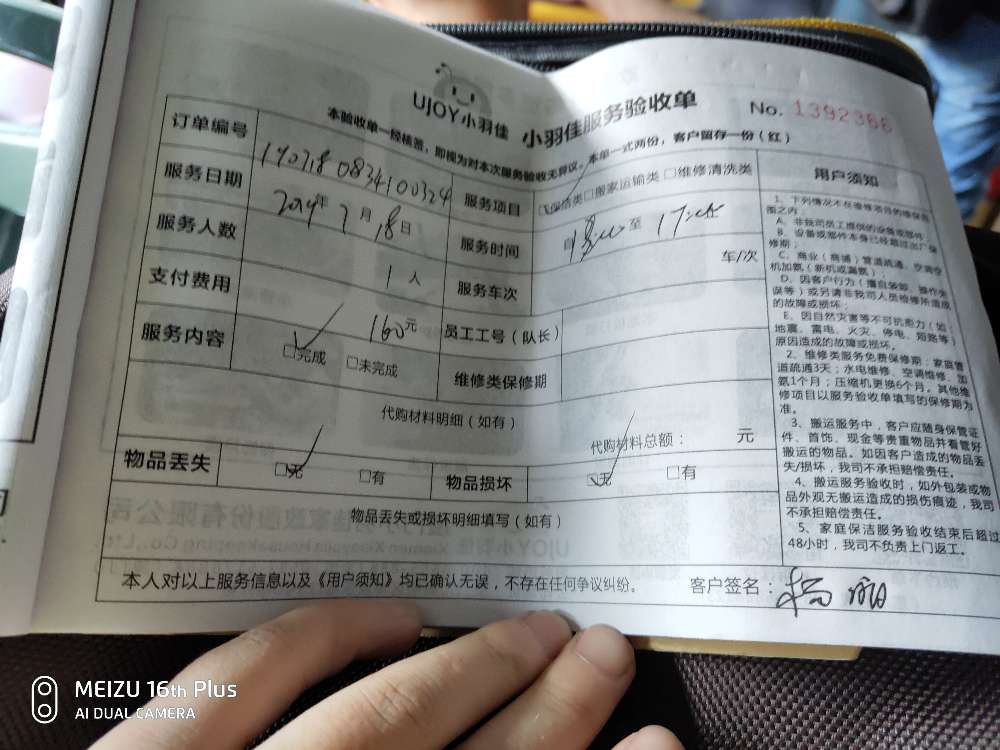 UJOY小羽佳 小羽佳服务验收单
No. 1392366
本验收单一经核签，即视为对本次服务验收无异议。本单一式两份，客户留存一份（红）
订单编号 1907180834100324 服务项目 □保洁类□搬家运输类 □维修清洗类
服务日期 2019年7月18日 服务时间 自 至
服务人数 1人 服务车次 车/次
支付费用 160元 员工工号（队长）
服务内容 □完成 □未完成 维修类保修期
代购材料明细（如有）
代购材料总额： 元
物品丢失 □无 □有 物品损坏 □无 □有
物品丢失或损坏明细填写（如有）
本人对以上服务信息以及《用户须知》均已确认无误，不存在任何争议纠纷。 客户签名：
用户须知
1、下列情况不在维修项目的维保范
围之内：
A、非我司员工提供的设备或部件；
B、设备或部件本身已经超过出厂保
修期；
C、商业（商铺）管道疏通、空调空
机加氨（新机或漏氨）；
D、因客户行为（擅自装卸、操作失
误等）或另请非我司人员检修所造成
的故障或损坏；
E、因自然灾害等不可抗拒力（如：
地震、雷电、火灾、停电、短路等）
原因造成的故障或损坏。
2、维修类服务免费保修期：家庭管
道疏通3天；水电维修、空调维修、加
氨1个月；压缩机更换6个月。其他维
修项目以服务验收单填写的保修期为
准。
3、搬运服务中，客户应随身保管证
件、首饰、现金等贵重物品并看管好
搬运的物品。如因客户造成的物品丢
失/损坏，我司不承担赔偿责任。
4、搬运服务验收时，如外包装或物
品外观无搬运造成的损伤痕迹，我司
不承担赔偿责任。
5、家庭保洁服务验收结束后超过
48小时，我司不负责上门返工。
MEIZU 16th Plus
AI DUAL CAMERA